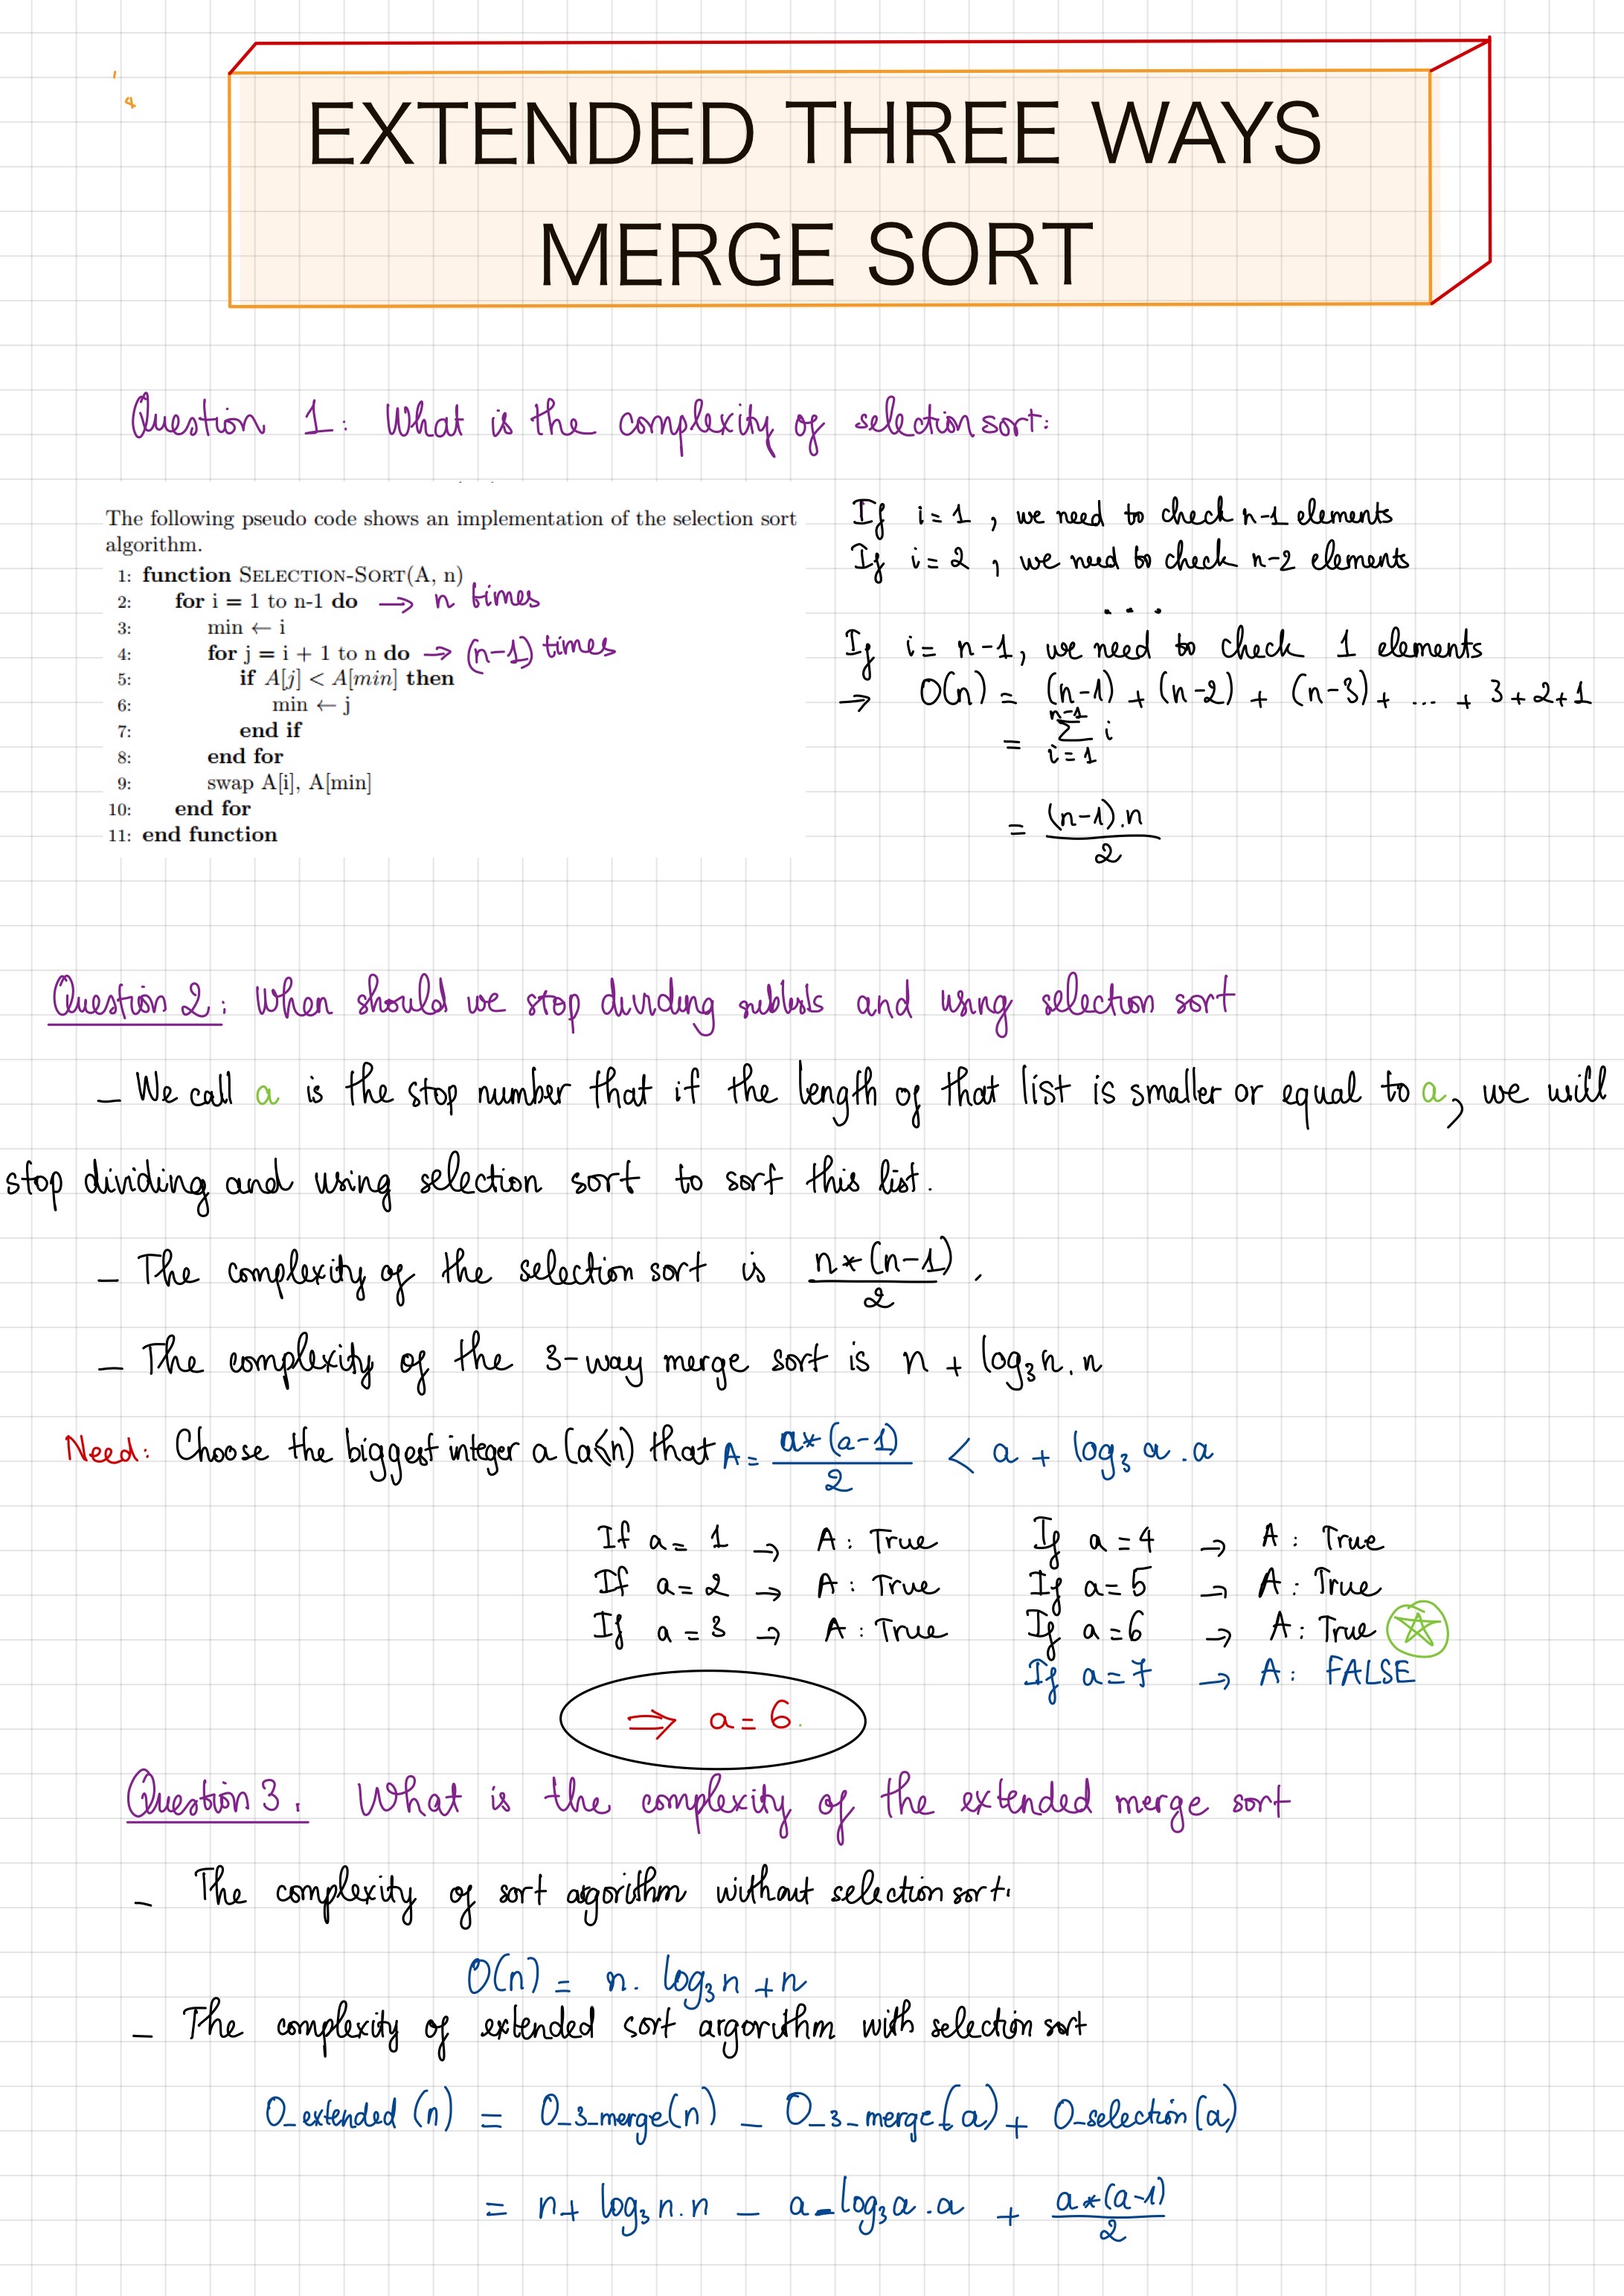 EXTENDED THREE WAYS
MERGE SORT
Question 1: What is the complexity of selection sort:
The following pseudo code shows an implementation of the selection sort
algorithm.
1: function SELECTION-SORT(A, n)
2: for i = 1 to n-1 do → n times
3: min ← i
4: for j = i + 1 to n do → (n-1) times
5: if A[j] < A[min] then
6: min ← j
7: end if
8: end for
9: swap A[i], A[min]
10: end for
11: end function
If i = 1 , we need to check n-1 elements
If i = 2 , we need to check n-2 elements
...
If i = n-1, we need to check 1 elements
→ O(n) = (n-1) + (n-2) + (n-3) + ... + 3+2+1
n-1
= Σ i
i=1
= (n-1).n
2
Question 2: When should we stop dividing sublists and using selection sort
- We call a is the stop number that if the length of that list is smaller or equal to a, we will
stop dividing and using selection sort to sort this list.
- The complexity of the selection sort is n*(n-1) .
2
- The complexity of the 3-way merge sort is n + log₃n.n
Need: Choose the biggest integer a (a<n) that A = a*(a-1) < a + log₃ a .a
2
If a = 1 → A: True
If a = 2 → A: True
If a = 3 → A: True
If a = 4 → A: True
If a = 5 → A: True
If a = 6 → A: True
If a = 7 → A: FALSE
⇒ a = 6.
Question 3. What is the complexity of the extended merge sort
- The complexity of sort agorithm without selection sort.
O(n) = n. log₃n + n
- The complexity of extended sort argorithm with selection sort
O_extended (n) = O_3_merge(n) - O_3_merge(a) + O_selection(a)
= n + log₃n.n - a - log₃a .a + a*(a-1)
2